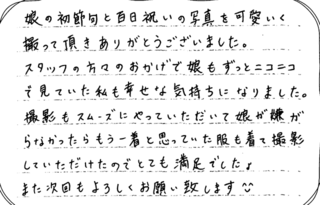 娘の初節句と百日祝いの写真を可愛いく
撮って頂きありがとうございました。
スタッフの方々のおかげで娘もずっとニコニコ
で見ていた私も幸せな気持ちになりました。
撮影もスムーズにやっていただいて娘が嫌が
らなかったらもう一着と思っていた服も着て撮影
していただけたのでとても満足でした♪
また次回もよろしくお願い致します